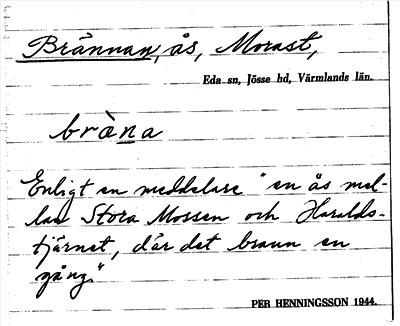 Brännan, ås, Morast,
Eda sn, Jösse hd, Värmlands län.
bràna
Enligt en meddelare "en ås mel-
lan Stora Mossen och Haralds-
tjärnet, där det brann en
gång."
PER HENNINGSSON 1944.